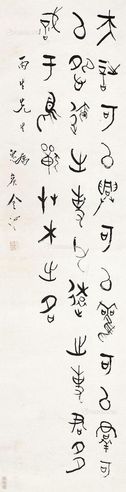 夫詩可以興可以觀可以羣可
以怨邇之事父遠之事君多
識于鳥獸艸木之名
生先生屬